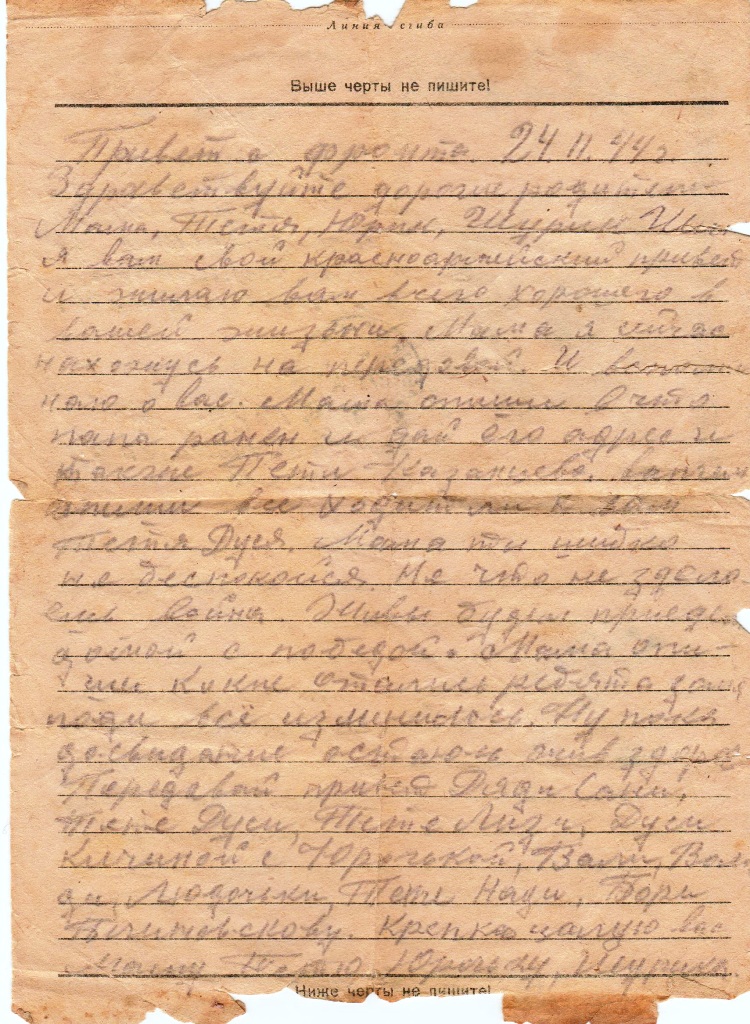 Линия сгиба
Выше черты не пишите!
Привет с фронта 24.11.44г.
Здравствуйте дорогие родители
Мама, Тетя, Юрик, Шурик Шлю
я вам свой красноармейский привет
и жилаю вам всего хорошего в
вашей жизьни. Мама я сичас
нахожусь на передовой. И
наю о вас. Мама опиши
папа ранен и дай его адрес и
также Пети Казанцева.
опиши все ходит ли к вам
тетя Дуся. Мама ты шибко
не беспокойся. Не что не здела
ешь война. Живы будем приедем
домой с победой. Мама опи-
ши какие остались ребята
поди всё изминилось. Ну пока
досвидание остаюсь жив здоров
Передавай привет Дяди Сани,
тете Дуси, Тете Лизи, Дуси
с Юрочькой, Вали, Воло
ди, Людочьки, Тете Нади, Бори
Крепко цалую вас
Маму Тетю Юрочьку, Шурика.
Ниже черты не пишите!